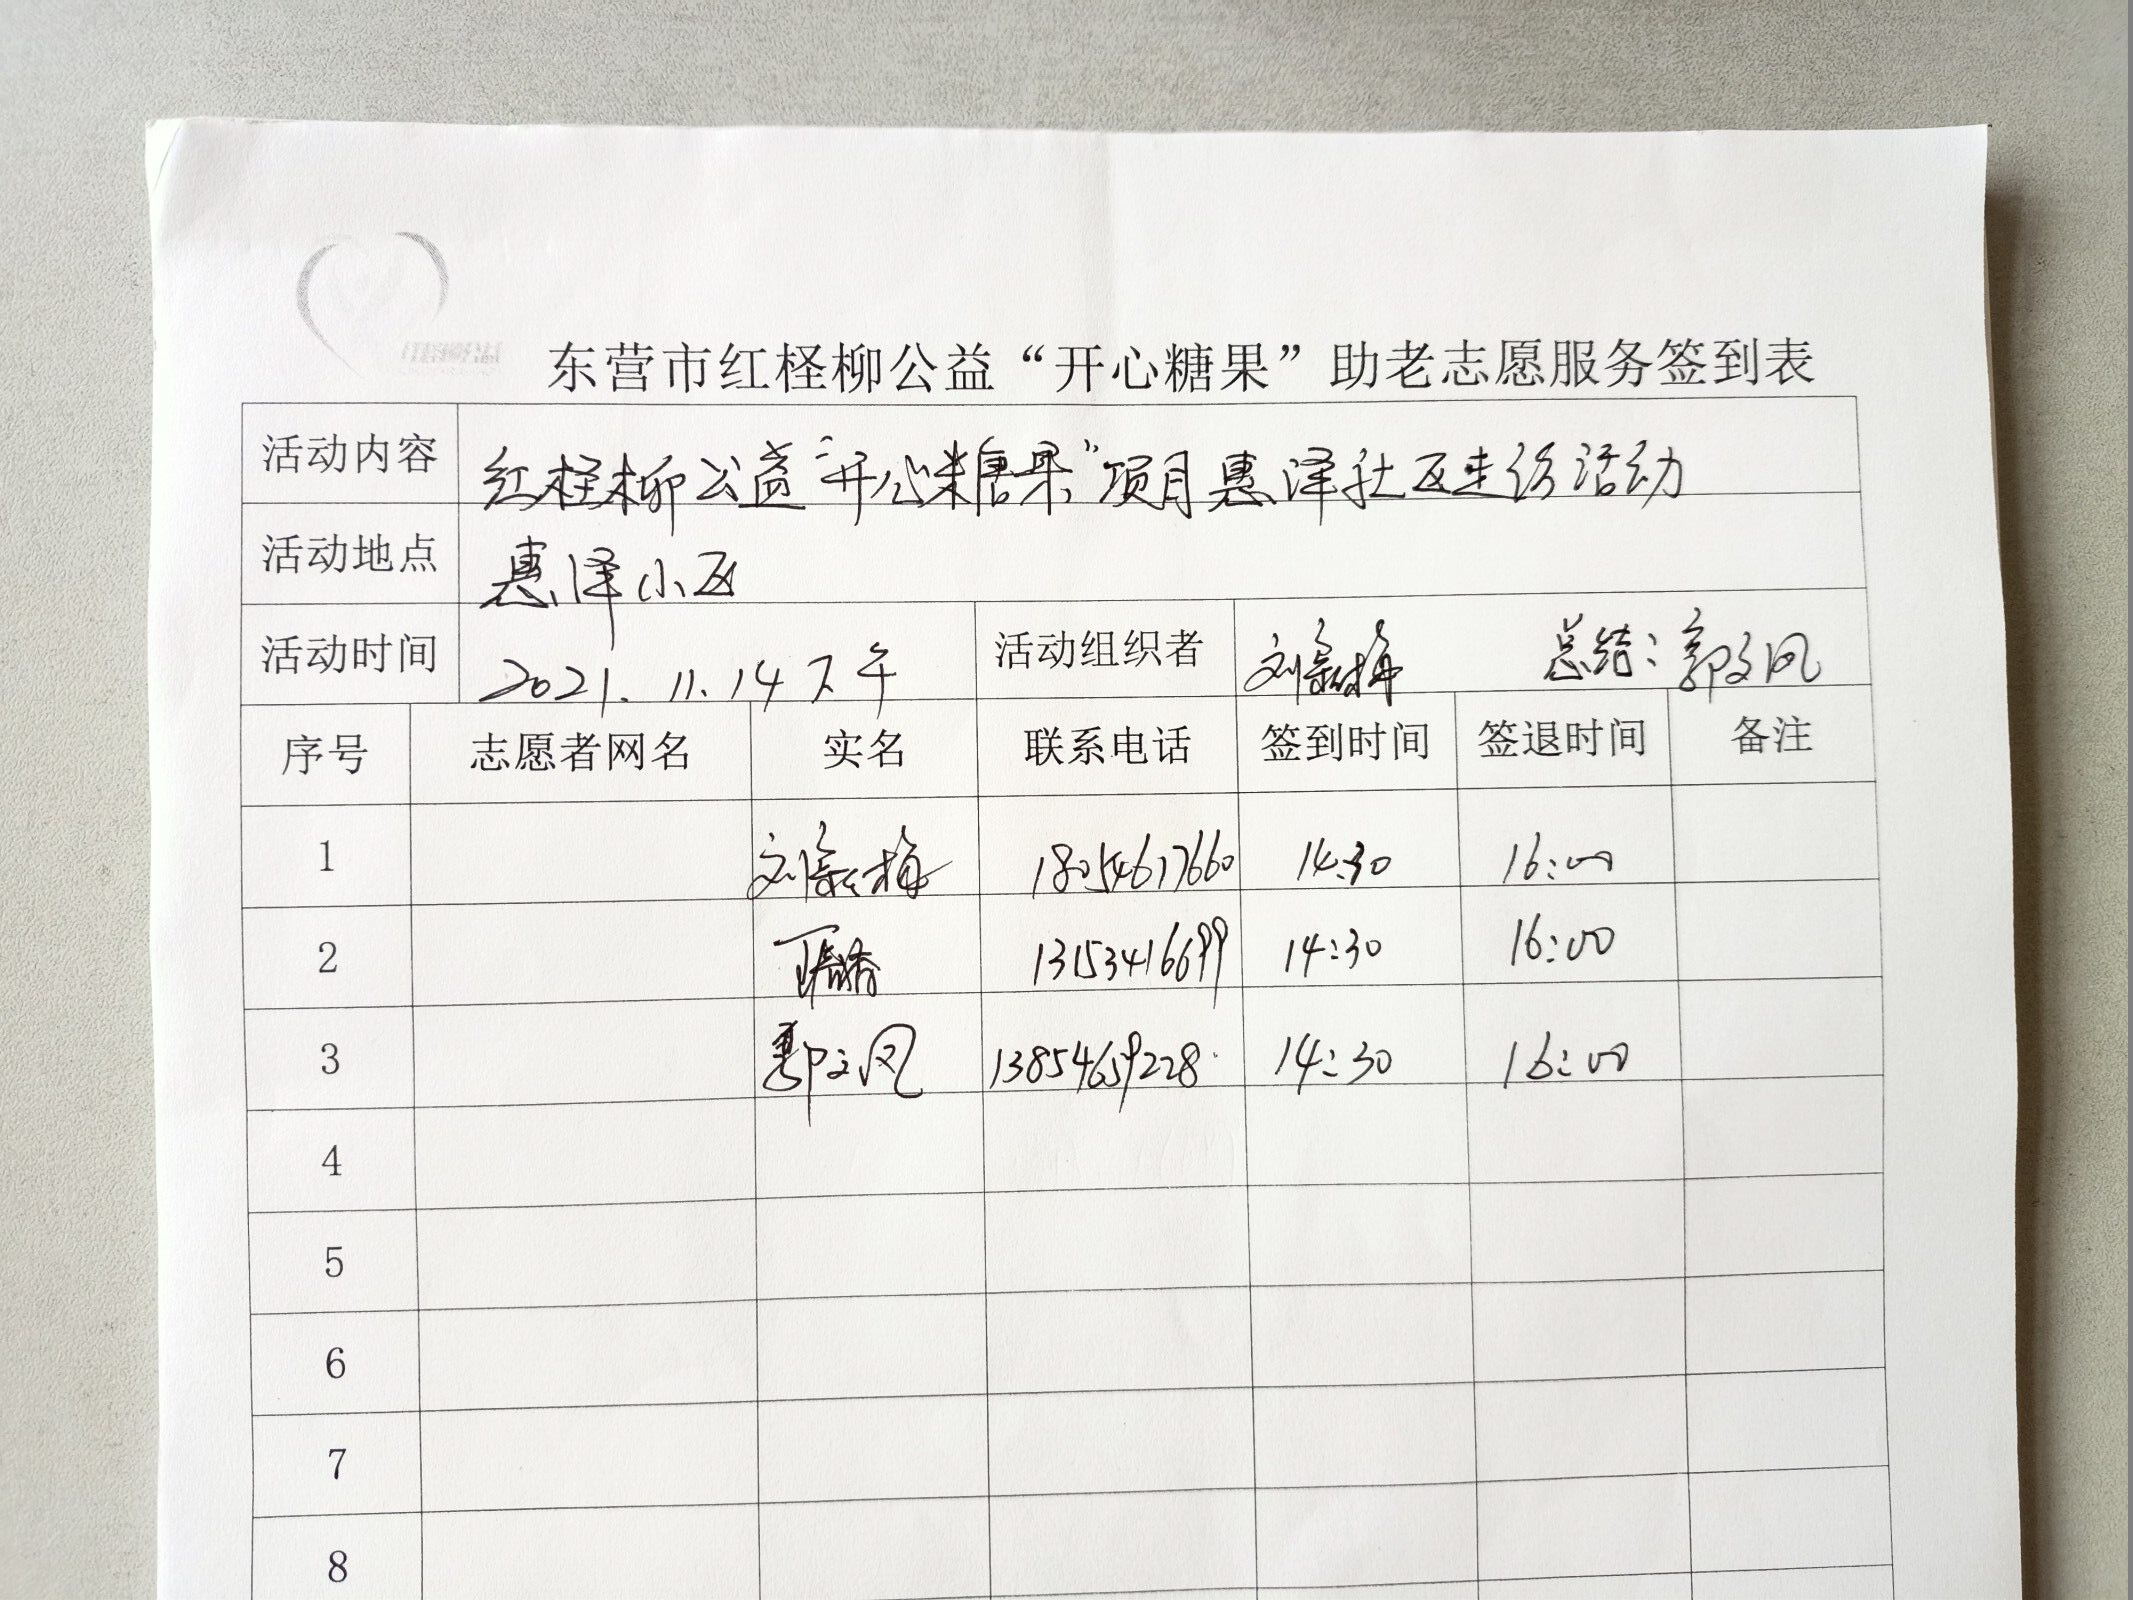 东营市红柽柳公益“开心糖果”助老志愿服务签到表
活动内容 红柽柳公益“开心糖果”项目惠泽社区走访活动
活动地点 惠泽小区
活动时间 2021.11.14下午 活动组织者 刘 梅 总结：郭文凤
序号 志愿者网名 实名 联系电话 签到时间 签退时间 备注
1 刘 梅 18054617660 14:30 16:00
2 13153416699 14:30 16:00
3 郭文凤 13854659228 14:30 16:00
4
5
6
7
8